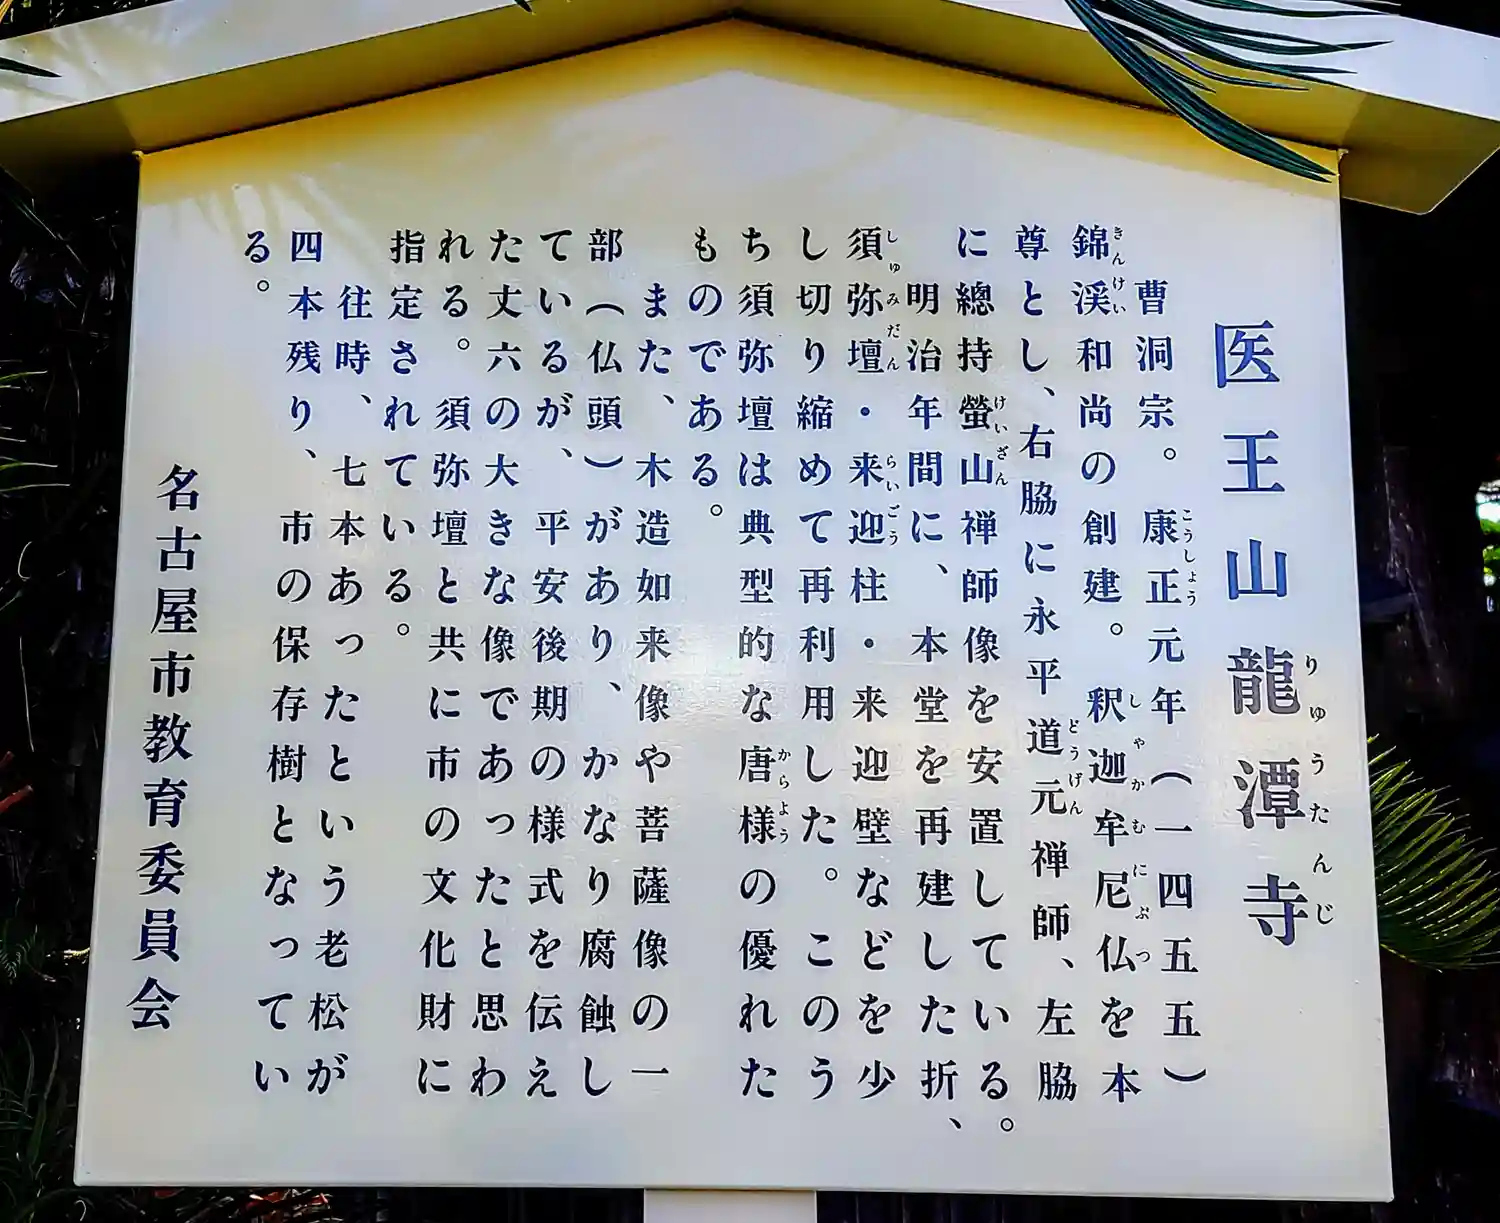 医王山 龍潭寺
りゅうたんじ
曹洞宗。康正元年（一四五五）
こうしょう
錦渓和尚の創建。釈迦牟尼仏を本
きんけい しゃかむにぶつ
尊とし、右脇に永平道元禅師、左脇
どうげん
に總持螢山禅師像を安置している。
けいざん
明治年間に、本堂を再建した折、
須弥壇・来迎柱・来迎壁などを少
しゅみだん らいごう
し切り縮めて再利用した。このう
ち須弥壇は典型的な唐様の優れた
からよう
ものである。
また、木造如来像や菩薩像の一
部（仏頭）があり、かなり腐蝕し
ているが、平安後期の様式を伝え
た丈六の大きな像であったと思わ
れる。須弥壇と共に市の文化財に
指定されている。
往時、七本あったという老松が
四本残り、市の保存樹となってい
る。
名古屋市教育委員会